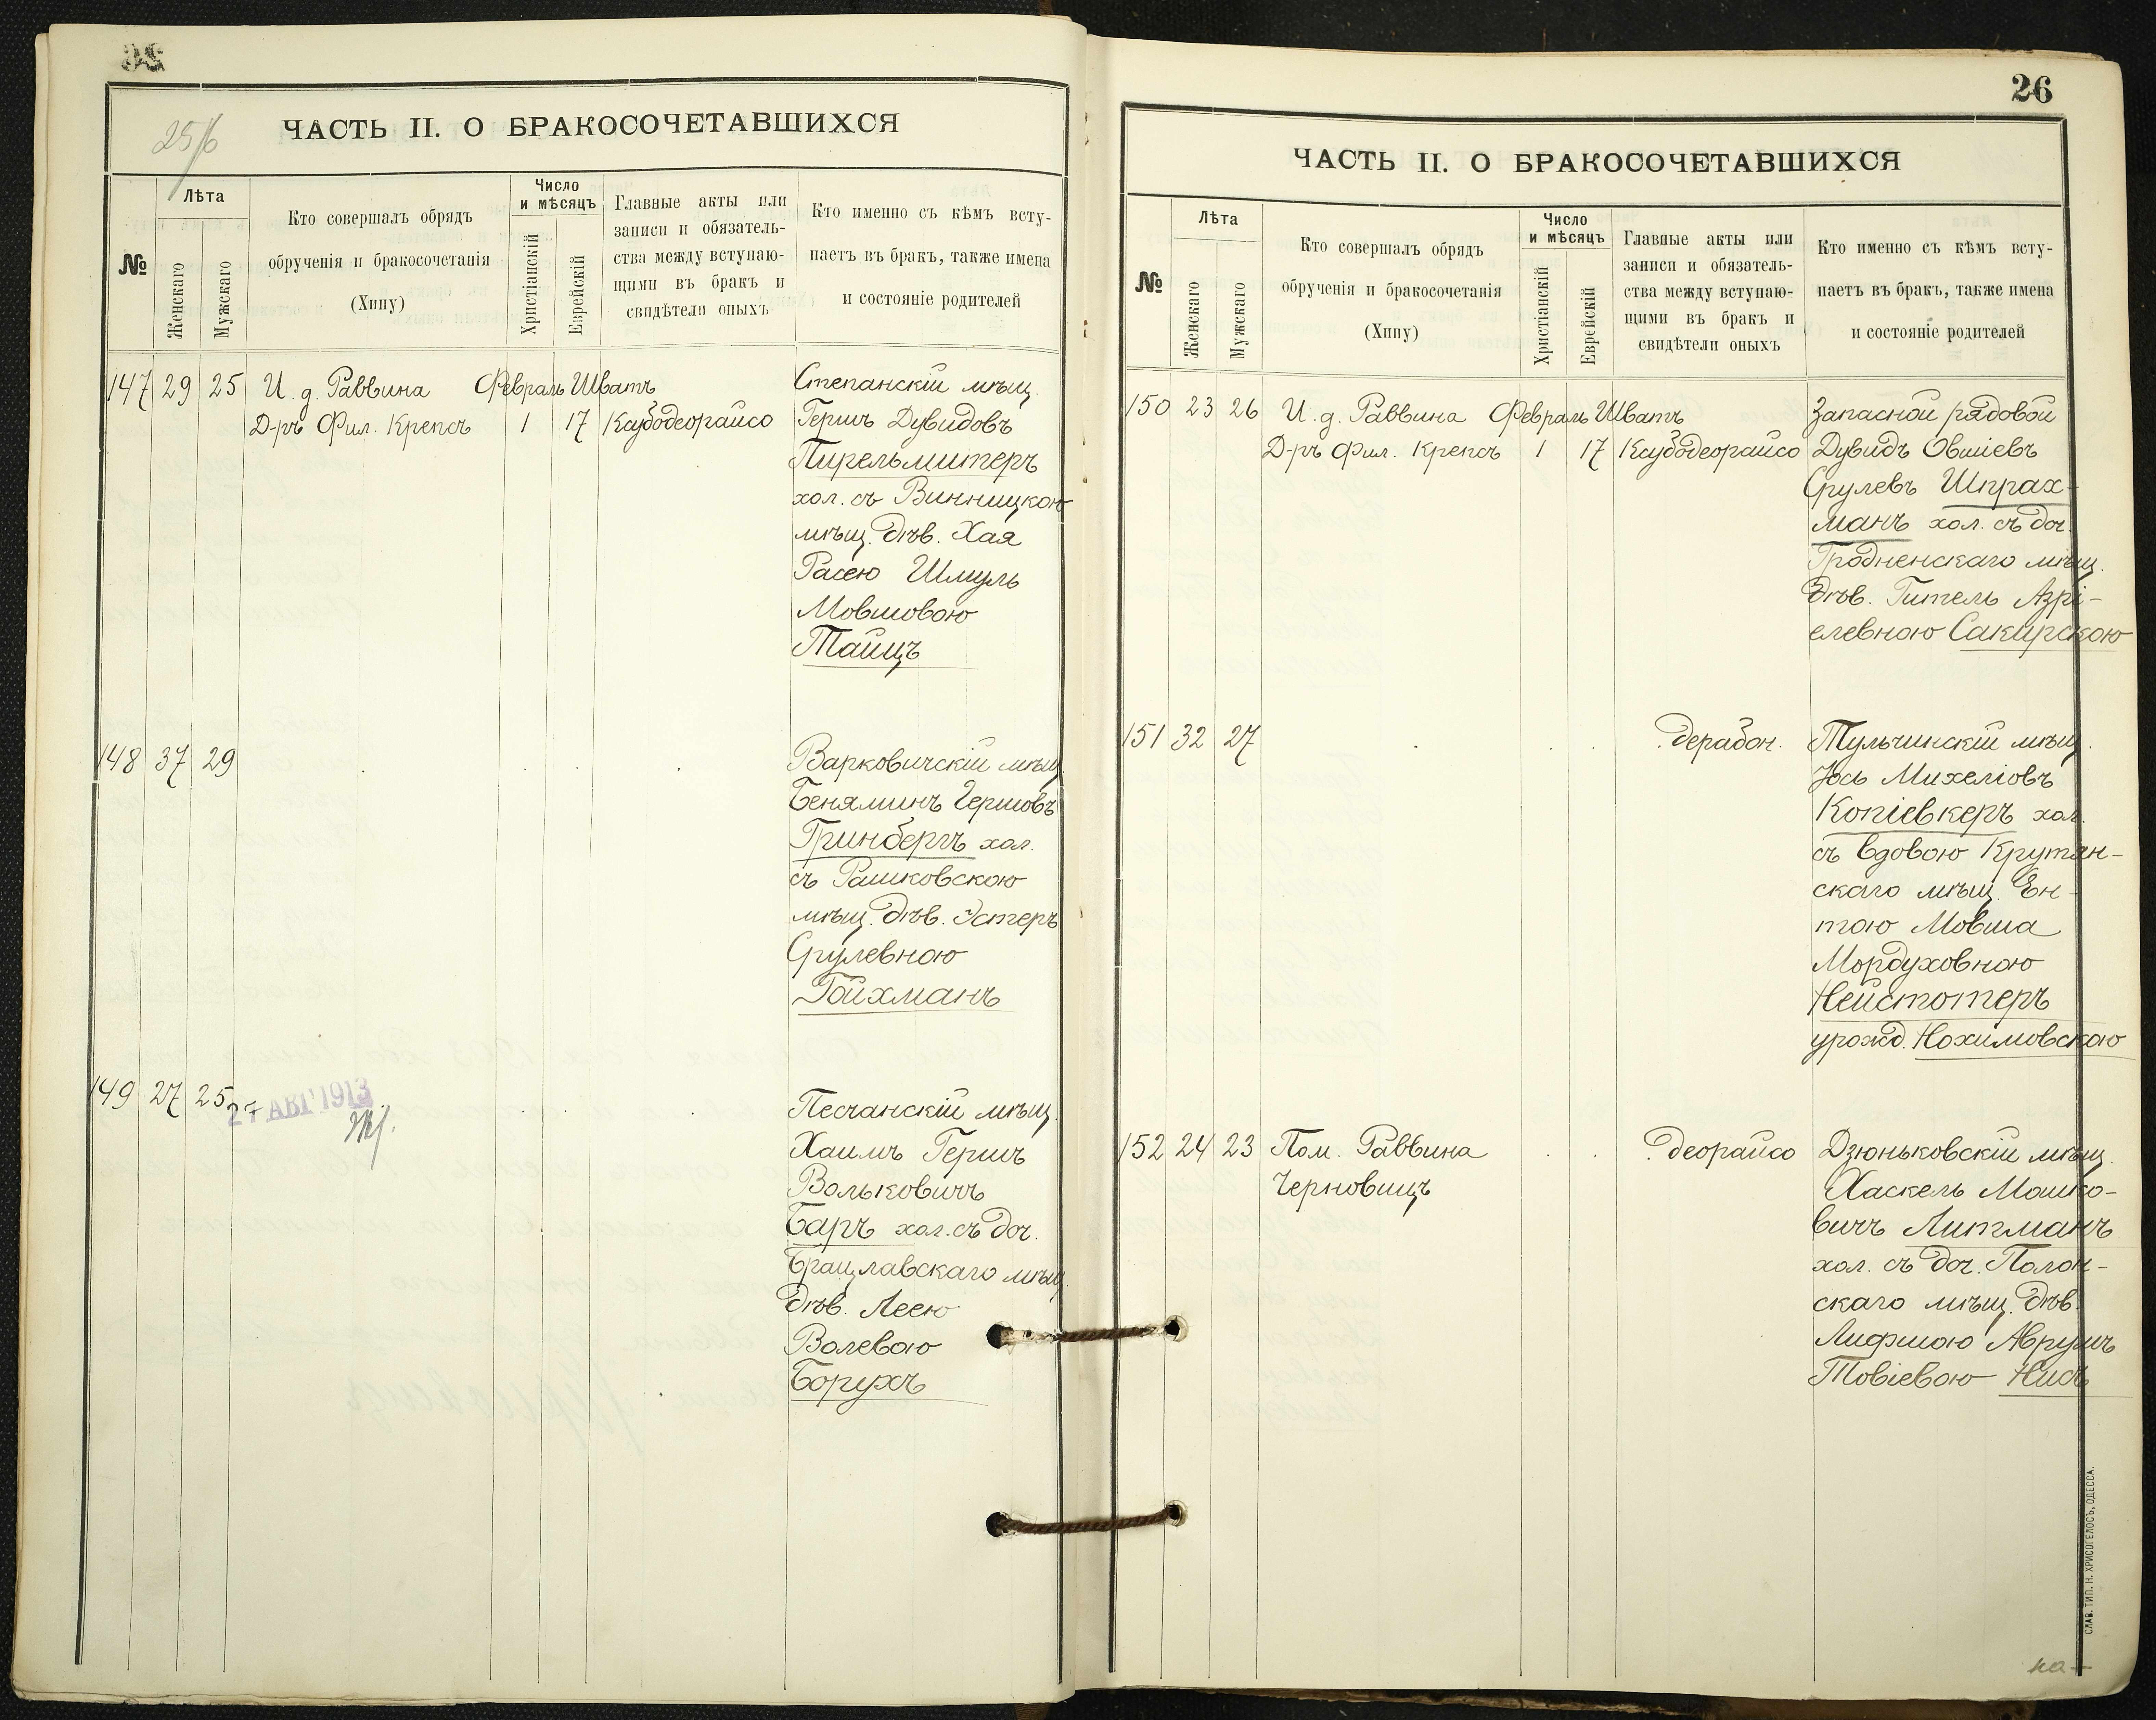 26
25/6
ЧАСТЬ II. О БРАКОСОЧЕТАВШИХСЯ
№
Лѣта
Женскаго
Мужскаго
Кто совершалъ обрядъ
обрученія и бракосочетанія
(Хипу)
Число
и мѣсяцъ
Христіанскій
Еврейскій
Главные акты или
записи и обязатель-
ства между вступаю-
щими въ бракъ и
свидѣтели оныхъ
Кто именно съ кѣмъ всту-
паетъ въ бракъ, также имена
и состояніе родителей
147 29 25 И. д. Раввина Февраль Шватъ
Д-ръ Фил. Крепсъ 1 17 Каубодеорайсо
Степанскій мѣщ.
Гершъ Дувидовъ
Пирельмитеръ
хол. съ Винницкою
мѣщ. дѣв. Хая
Расею Шмуль
Мовшовою
Тайцъ
148 37 29
Варковичскій мѣщ.
Беняминъ Гершовъ
Гринбергъ хол.
съ Рашковскою
мѣщ. дѣв. Эстеръ
Срулевною
Гойхманъ
149 27 25
27 АВГ 1913
Песчанскій мѣщ.
Хаимъ Гершъ
Вольковичъ
Баръ хол. съ доч.
Брацлавскаго мѣщ.
дѣв. Леею
Волевою
Борухъ
26
ЧАСТЬ II. О БРАКОСОЧЕТАВШИХСЯ
№
Лѣта
Женскаго
Мужскаго
Кто совершалъ обрядъ
обрученія и бракосочетанія
(Хипу)
Число
и мѣсяцъ
Христіанскій
Еврейскій
Главные акты или
записи и обязатель-
ства между вступаю-
щими въ бракъ и
свидѣтели оныхъ
Кто именно съ кѣмъ всту-
паетъ въ бракъ, также имена
и состояніе родителей
150 23 26 И. д. Раввина Февраль Шватъ
Д-ръ Фил. Крепсъ 1 17 Каубодеорайсо
Запасной рядовой
Дувидъ Овшіевъ
Срулевъ Шпрах-
манъ хол. съ доч.
Гродненскаго мѣщ.
дѣв. Гитель Азрі-
елевною Сакирскою
151 32 27 дерабон.
Тульчинскій мѣщ.
Юсь Михеліовъ
Копіевкеръ хол.
съ вдовою Крутян-
скаго мѣщ. Ен-
тою Мовша
Мордуховною
Нейстотеръ
урожд. Нохимовскою
152 24 23 Пом. Раввина деорайсо
Черновицъ
Дзюньковскій мѣщ.
Хаскель Мошко-
вичъ Липманъ
хол. съ доч. Полон-
скаго мѣщ. дѣв.
Лифшою Аврумъ
Товіевою Нисъ
СЛАВ. ТИП. Н. ХРИСОГЕЛОСЪ, ОДЕССА.